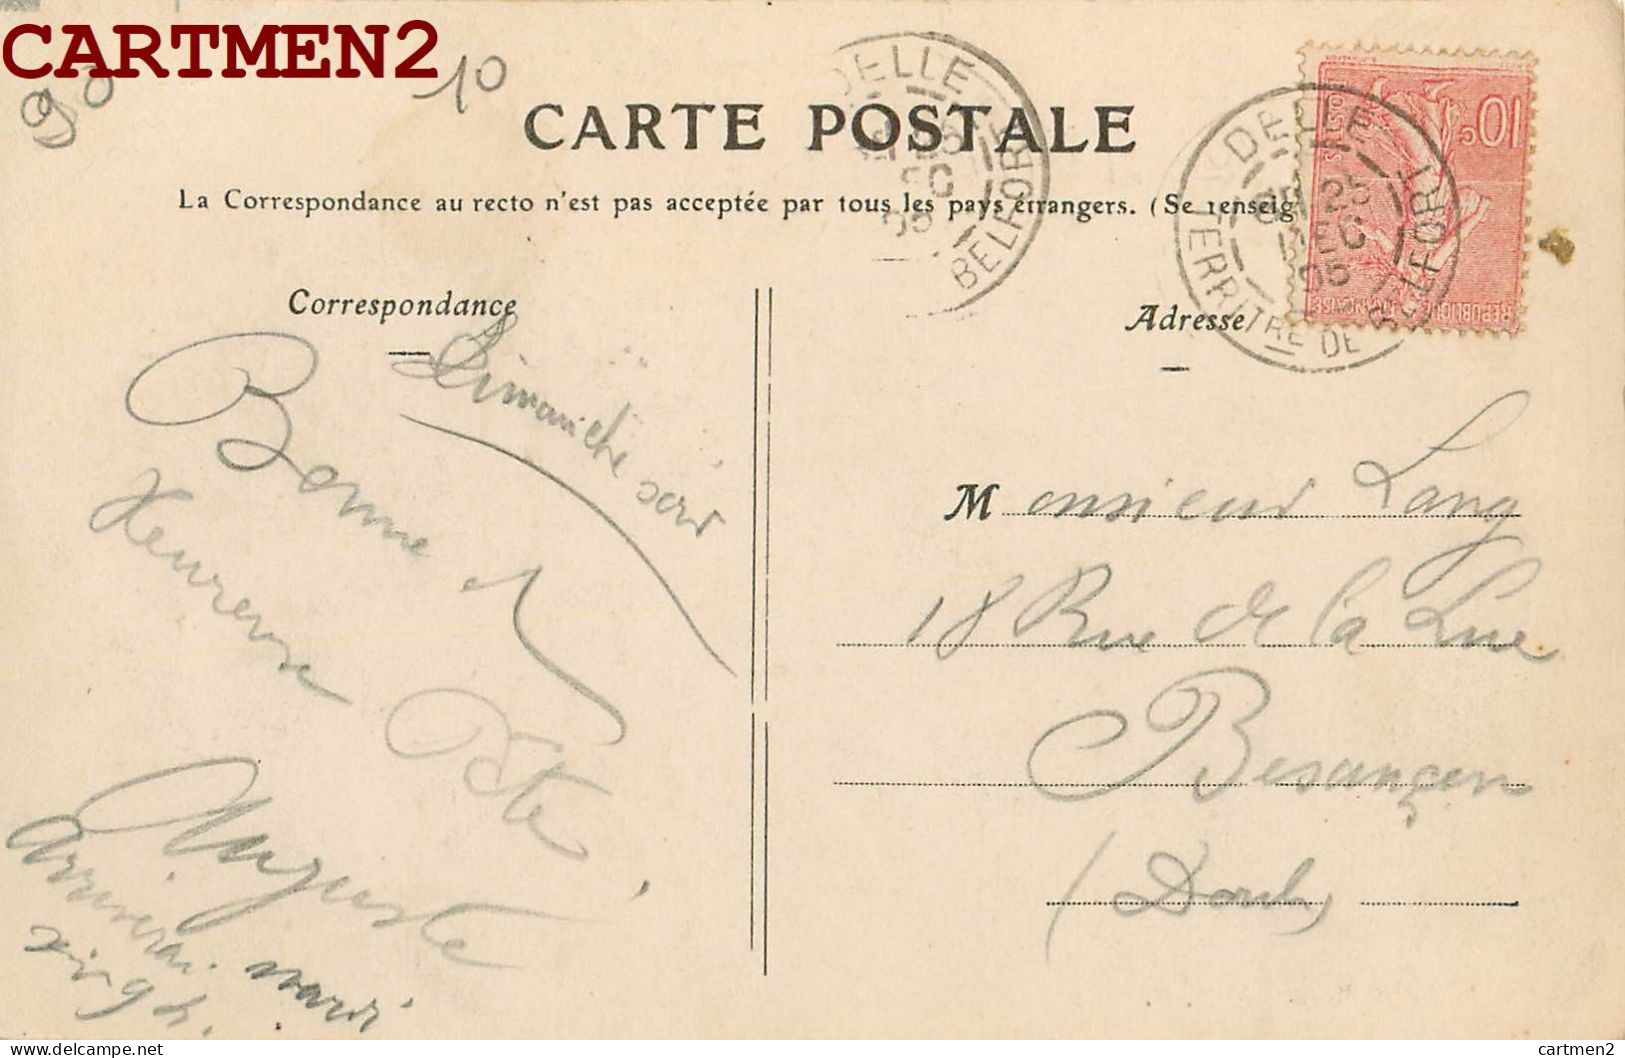 CARTMEN2
90
10
CARTE POSTALE
La Correspondance au recto n'est pas acceptée par tous les pays étrangers. (Se renseig
DELLE
25
DEC
05
BELFORT
DELLE
25
DEC
05
TERRITRE DE BELFORT
10c
REPUBLIQUE FRANÇAISE
Correspondance
Adresse
Dimanche soir
Bonne et
Heureuse
fête
Auguste
arriverai mardi
Monsieur Lang
18 Rue de la Lue
Besançon
(Doubs)
delcampe.net
cartmen2